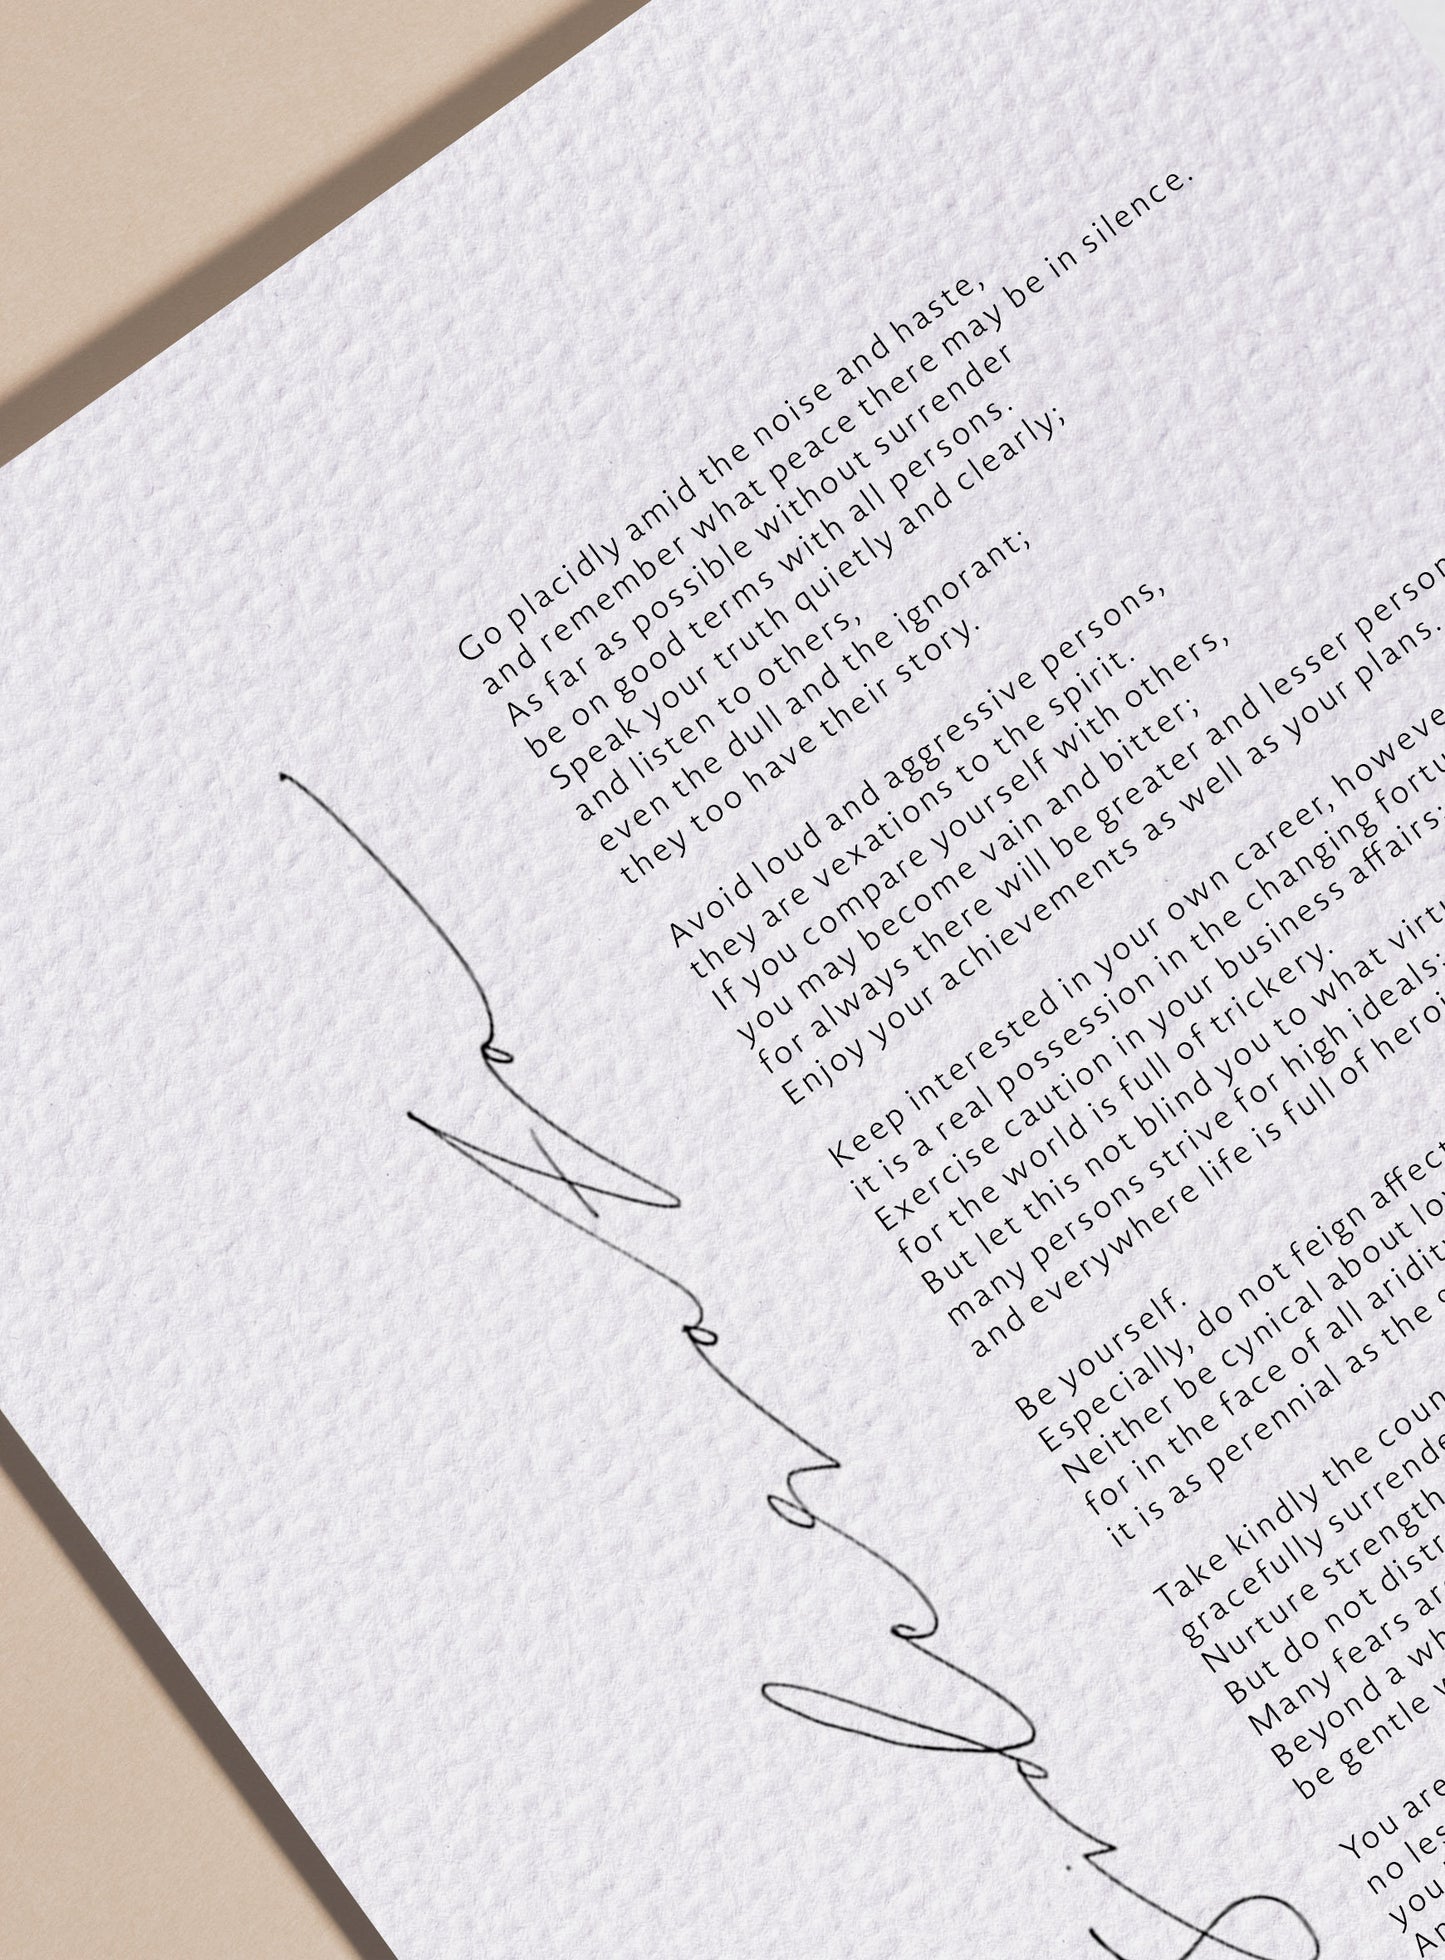 Desiderata
Go placidly amid the noise and haste,
and remember what peace there may be in silence.
As far as possible without surrender
be on good terms with all persons.
Speak your truth quietly and clearly;
and listen to others,
even the dull and the ignorant;
they too have their story.
Avoid loud and aggressive persons,
they are vexations to the spirit.
If you compare yourself with others,
you may become vain and bitter;
for always there will be greater and lesser person
Enjoy your achievements as well as your plans.
Keep interested in your own career, howeve
it is a real possession in the changing fortu
Exercise caution in your business affairs;
for the world is full of trickery.
But let this not blind you to what virtu
many persons strive for high ideals;
and everywhere life is full of heroi
Be yourself.
Especially, do not feign affect
Neither be cynical about lo
for in the face of all aridity
it is as perennial as the
Take kindly the coun
gracefully surrende
Nurture strength
But do not distr
Many fears ar
Beyond a wh
be gentle
You are
no les
you
An